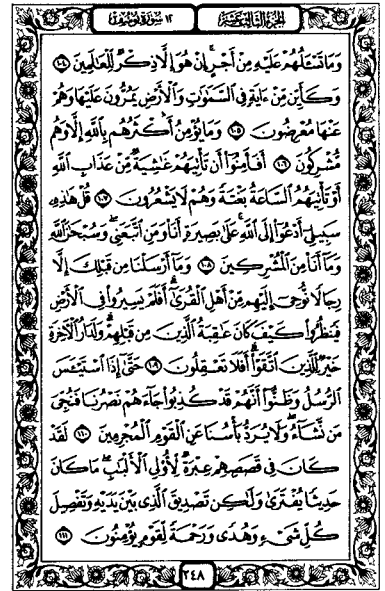 الجزء الثالث عشر ١٢ سورة يوسف
وَمَا تَسْـَٔلُهُمْ عَلَيْهِ مِنْ أَجْرٍ إِنْ هُوَ إِلَّا ذِكْرٌ لِّلْعَٰلَمِينَ ١٠٤
وَكَأَيِّن مِّنْ ءَايَةٍ فِى ٱلسَّمَٰوَٰتِ وَٱلْأَرْضِ يَمُرُّونَ عَلَيْهَا وَهُمْ
عَنْهَا مُعْرِضُونَ ١٠٥ وَمَا يُؤْمِنُ أَكْثَرُهُم بِٱللَّهِ إِلَّا وَهُم
مُّشْرِكُونَ ١٠٦ أَفَأَمِنُوٓا۟ أَن تَأْتِيَهُمْ غَٰشِيَةٌ مِّنْ عَذَابِ ٱللَّهِ
أَوْ تَأْتِيَهُمُ ٱلسَّاعَةُ بَغْتَةً وَهُمْ لَا يَشْعُرُونَ ١٠٧ قُلْ هَٰذِهِۦ
سَبِيلِىٓ أَدْعُوٓا۟ إِلَى ٱللَّهِ عَلَىٰ بَصِيرَةٍ أَنَا۠ وَمَنِ ٱتَّبَعَنِى وَسُبْحَٰنَ ٱللَّهِ
وَمَآ أَنَا۠ مِنَ ٱلْمُشْرِكِينَ ١٠٨ وَمَآ أَرْسَلْنَا مِن قَبْلِكَ إِلَّا
رِجَالًا نُّوحِىٓ إِلَيْهِم مِّنْ أَهْلِ ٱلْقُرَىٰٓ أَفَلَمْ يَسِيرُوا۟ فِى ٱلْأَرْضِ
فَيَنظُرُوا۟ كَيْفَ كَانَ عَٰقِبَةُ ٱلَّذِينَ مِن قَبْلِهِمْ وَلَدَارُ ٱلْءَاخِرَةِ
خَيْرٌ لِّلَّذِينَ ٱتَّقَوْا۟ أَفَلَا تَعْقِلُونَ ١٠٩ حَتَّىٰٓ إِذَا ٱسْتَيْـَٔسَ
ٱلرُّسُلُ وَظَنُّوٓا۟ أَنَّهُمْ قَدْ كُذِبُوا۟ جَآءَهُمْ نَصْرُنَا فَنُجِّىَ
مَن نَّشَآءُ وَلَا يُرَدُّ بَأْسُنَا عَنِ ٱلْقَوْمِ ٱلْمُجْرِمِينَ ١١٠ لَقَدْ
كَانَ فِى قَصَصِهِمْ عِبْرَةٌ لِّأُو۟لِى ٱلْأَلْبَٰبِ مَا كَانَ
حَدِيثًا يُفْتَرَىٰ وَلَٰكِن تَصْدِيقَ ٱلَّذِى بَيْنَ يَدَيْهِ وَتَفْصِيلَ
كُلِّ شَىْءٍ وَهُدًى وَرَحْمَةً لِّقَوْمٍ يُؤْمِنُونَ ١١١
٢٤٨